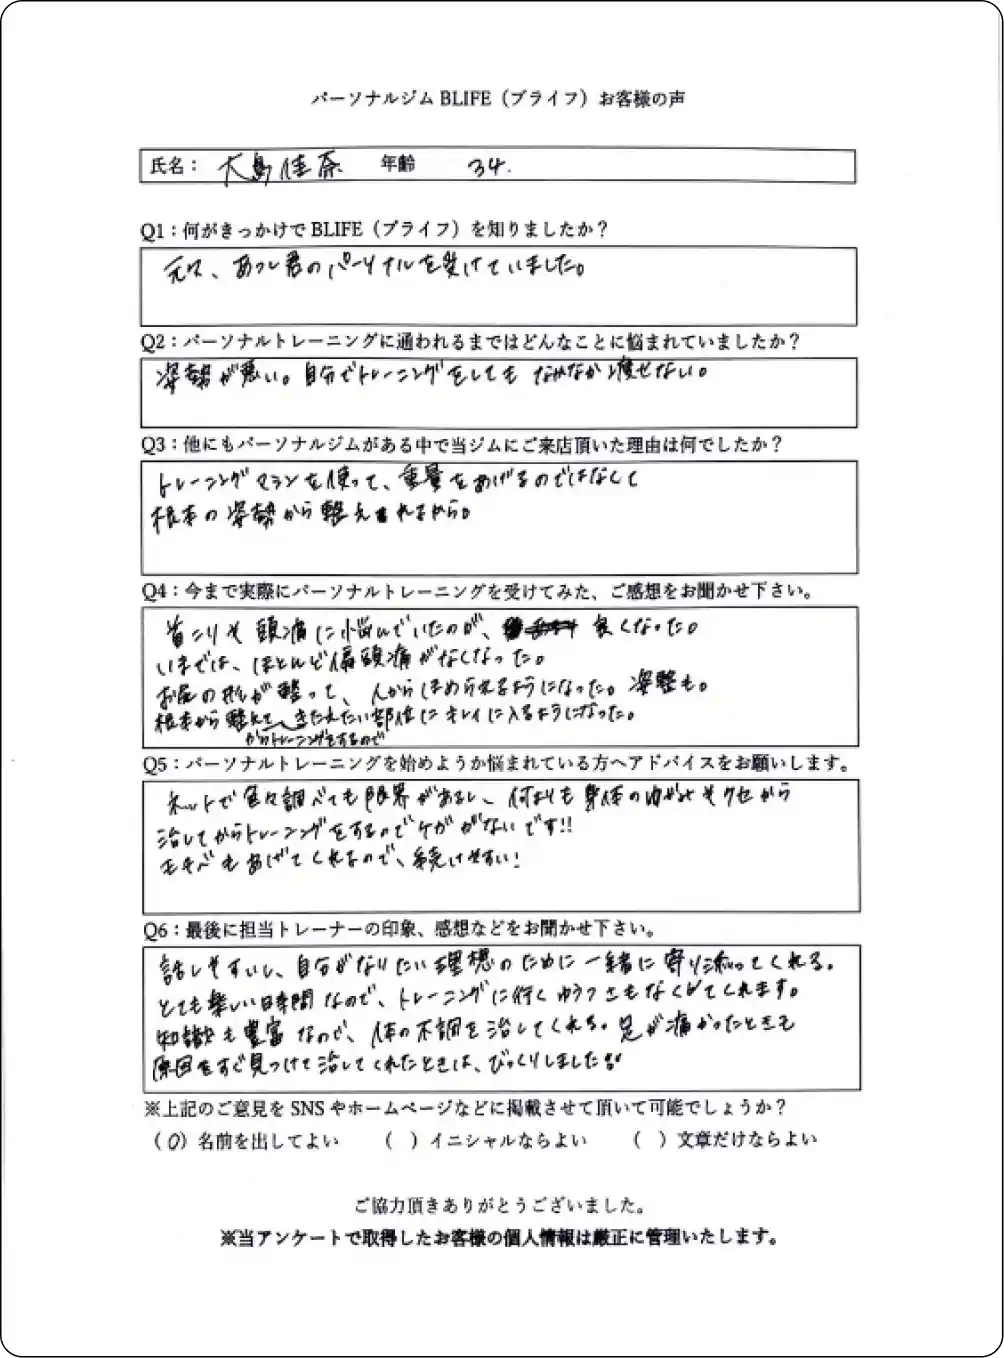 パーソナルジム BLIFE（ブライフ）お客様の声
氏名： 大島佳奈 年齢 34.
Q1：何がきっかけで BLIFE（ブライフ）を知りましたか？
元々、あつし君のパーソナルを受けていました。
Q2：パーソナルトレーニングに通われるまではどんなことに悩まれていましたか？
姿勢が悪い。自分でトレーニングをしてもなかなか痩せない。
Q3：他にもパーソナルジムがある中で当ジムにご来店頂いた理由は何でしたか？
トレーニングマシンを使って、重量をあげるのではなくて
根本の姿勢から整えれるから。
Q4：今まで実際にパーソナルトレーニングを受けてみた、ご感想をお聞かせ下さい。
首こりや頭痛に悩んでいたのが、良くなった。
いまでは、ほとんど偏頭痛がなくなった。
お尻の形が整って、人からほめられるようになった。姿勢も。
根本から整えて、きたえたい部位にキレイに入るようになった。
からトレーニングをするので
Q5：パーソナルトレーニングを始めようか悩まれている方へアドバイスをお願いします。
ネットで色々調べても限界があるし、何よりも身体のゆがみやクセから
治してからトレーニングをするのでケガがないです!!
モチベもあげてくれるので、続けやすい!
Q6：最後に担当トレーナーの印象、感想などをお聞かせ下さい。
話しやすいし、自分がなりたい理想のために一緒に寄り添ってくれる。
とても楽しい時間なので、トレーニングに行くゆううつさもなくしてくれます。
知識も豊富なので、体の不調を治してくれる。足が痛かったときも
原因をすぐ見つけて治してくれたときは、びっくりしました!!
※上記のご意見を SNS やホームページなどに掲載させて頂いて可能でしょうか？
（○）名前を出してよい （ ）イニシャルならよい （ ）文章だけならよい
ご協力頂きありがとうございました。
※当アンケートで取得したお客様の個人情報は厳正に管理いたします。